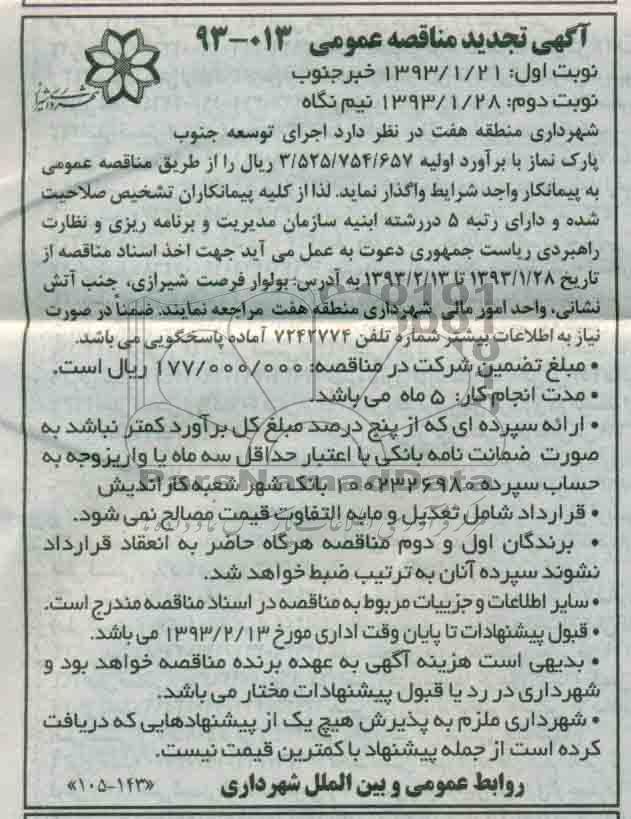 آگهی تجدید مناقصه عمومی ۰۱۳-۹۳
نوبت اول: ۱۳۹۳/۱/۲۱ خبرجنوب
نوبت دوم: ۱۳۹۳/۱/۲۸ نیم نگاه
شهرداری منطقه هفت در نظر دارد اجرای توسعه جنوب
پارک نماز با برآورد اولیه ۳/۵۲۵/۷۵۴/۶۵۷ ریال را از طریق مناقصه عمومی
به پیمانکار واجد شرایط واگذار نماید. لذا از کلیه پیمانکاران تشخیص صلاحیت
شده و دارای رتبه ۵ دررشته ابنیه سازمان مدیریت و برنامه ریزی و نظارت
راهبردی ریاست جمهوری دعوت به عمل می آید جهت اخذ اسناد مناقصه از
تاریخ ۱۳۹۳/۱/۲۸ تا ۱۳۹۳/۲/۱۳ به آدرس: بولوار فرصت شیرازی، جنب آتش
نشانی، واحد امور مالی شهرداری منطقه هفت مراجعه نمایند. ضمناً در صورت
نیاز به اطلاعات بیشتر شماره تلفن ۷۲۴۲۷۷۴ آماده پاسخگویی می باشد.
• مبلغ تضمین شرکت در مناقصه: ۱۷۷/۰۰۰/۰۰۰ ریال است.
• مدت انجام کار: ۵ ماه می باشد.
• ارائه سپرده ای که از پنج درصد مبلغ کل برآورد کمتر نباشد به
صورت ضمانت نامه بانکی با اعتبار حداقل سه ماه یا واریزوجه به
حساب سپرده ۱۰۰۲۳۲۶۹۸۰ بانک شهر شعبه کاراندیش
• قرارداد شامل تعدیل و مابه التفاوت قیمت مصالح نمی شود.
• برندگان اول و دوم مناقصه هرگاه حاضر به انعقاد قرارداد
نشوند سپرده آنان به ترتیب ضبط خواهد شد.
• سایر اطلاعات و جزییات مربوط به مناقصه در اسناد مناقصه مندرج است.
• قبول پیشنهادات تا پایان وقت اداری مورخ ۱۳۹۳/۲/۱۳ می باشد.
• بدیهی است هزینه آگهی به عهده برنده مناقصه خواهد بود و
شهرداری در رد یا قبول پیشنهادات مختار می باشد.
• شهرداری ملزم به پذیرش هیچ یک از پیشنهادهایی که دریافت
کرده است از جمله پیشنهاد با کمترین قیمت نیست.
روابط عمومی و بین الملل شهرداری «۱۰۵-۱۴۳»
ParsNamadData